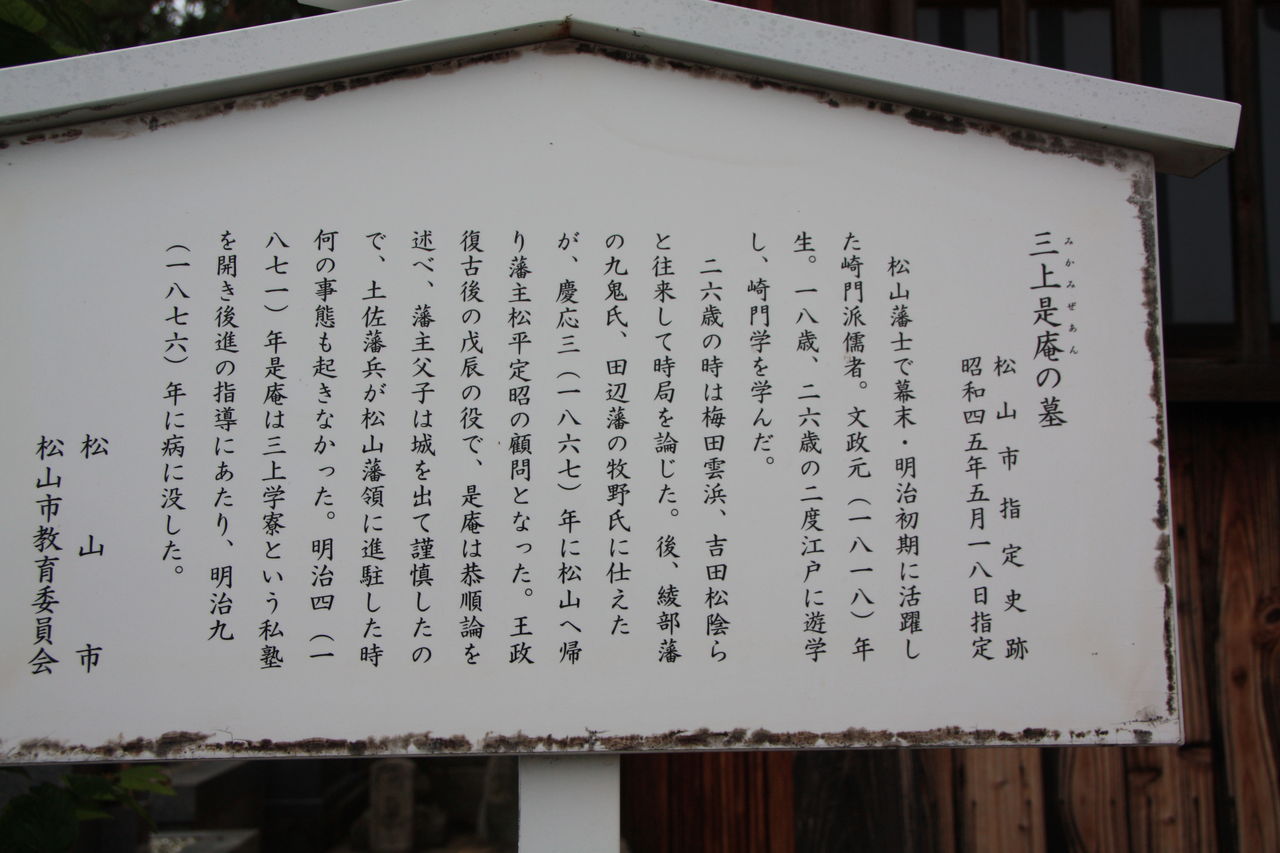 三上是庵の墓
みかみぜあん
松山市指定史跡
昭和四五年五月一八日指定
松山藩士で幕末・明治初期に活躍し
た崎門派儒者。文政元（一八一八）年
生。一八歳、二六歳の二度江戸に遊学
し、崎門学を学んだ。
二六歳の時は梅田雲浜、吉田松陰ら
と往来して時局を論じた。後、綾部藩
の九鬼氏、田辺藩の牧野氏に仕えた
が、慶応三（一八六七）年に松山へ帰
り藩主松平定昭の顧問となった。王政
復古後の戊辰の役で、是庵は恭順論を
述べ、藩主父子は城を出て謹慎したの
で、土佐藩兵が松山藩領に進駐した時
何の事態も起きなかった。明治四（一
八七一）年是庵は三上学寮という私塾
を開き後進の指導にあたり、明治九
（一八七六）年に病に没した。
松山市
松山市教育委員会